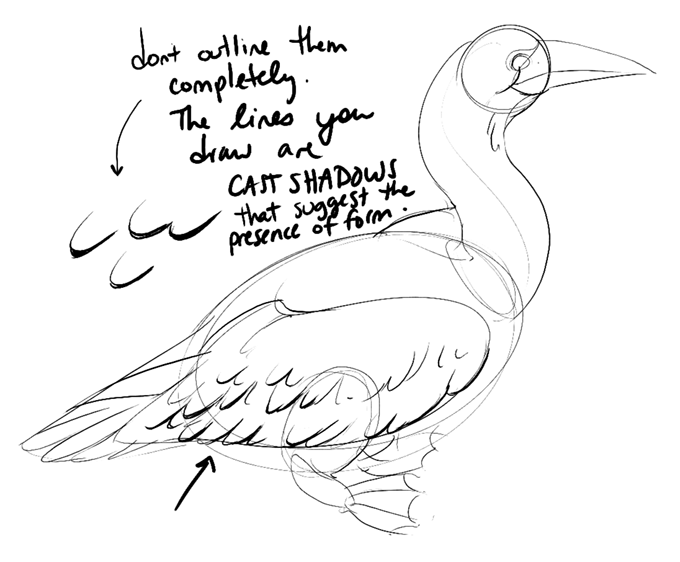 don't outline them
completely.
The lines you
draw are
CAST SHADOWS
that suggest the
presence of form.